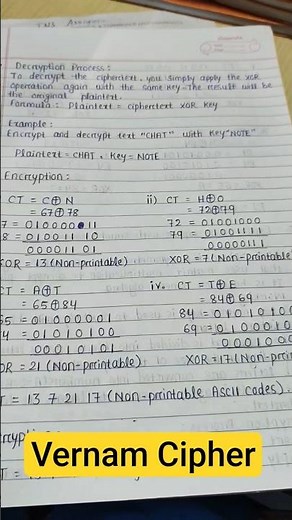 Decryption Process:
To decrypt the ciphertext, you simply apply the XOR
operation again with the same key. The result will be
the original plaintext.
Formula: Plaintext = ciphertext XOR Key
Example:
Encrypt and decrypt text "CHAT" with key "NOTE"
Plaintext = CHAT, Key = NOTE
Encryption:
CT = C⊕N
= 67⊕78
7 = 01000011
8 = 01001110
00001101
XOR = 13 (Non-printable)
ii) CT = H⊕O
= 72⊕79
72 = 01001000
79 = 01001111
00000111
XOR = 7 (Non-printable)
CT = A⊕T
= 65⊕84
65 = 01000001
4 = 01010100
00010101
OR = 21 (Non-printable)
iv. CT = T⊕E
= 84⊕69
84 = 0101010
69 = 0100010
000100
XOR = 17 (Non-prin
T = 13 7 21 17 (Non-printable Ascii codes).
Vernam Cipher